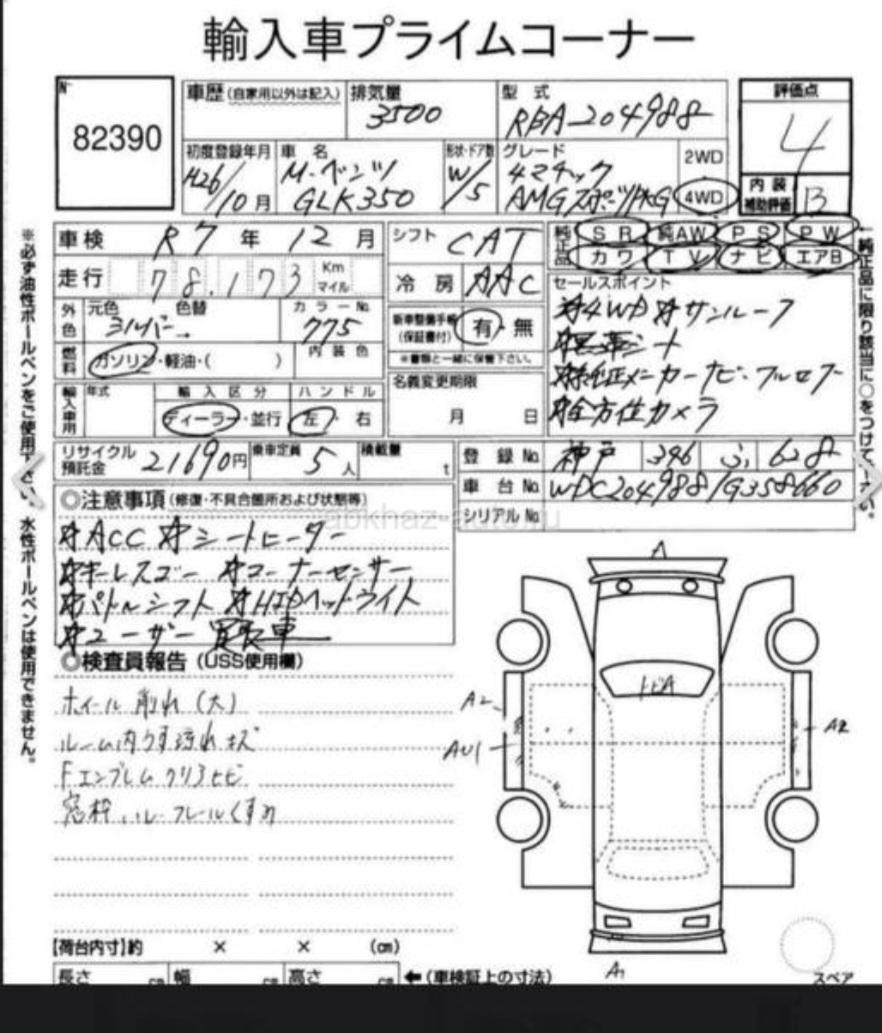 輸入車プライムコーナー
No
82390
車歴(自家用以外は記入) 排気量 3500
型式 RBA-204988
評価点 4
初度登録年月 H26/10月
車名 M・ベンツ GLK350
形状・ドア数 W/5
グレード 4マチック AMGスポーツPKG
2WD
4WD
内装補助評価 B
車検 R7年12月
シフト CAT
純正品 SR 純AW PS PW
カワ TV ナビ エアB
走行 78,173 Km マイル
冷房 AAC
セールスポイント
☆4WD ☆サンルーフ
☆黒革シート
☆純正メーカーナビ・フルセグ
☆全方位カメラ
外色 元色 シルバー 色替 → カラーNo. 775
新車整備手帳(保証書付) 有・無
※書類と一緒に保管下さい。
燃料 ガソリン・軽油・( ) 内装色
名義変更期限
月 日
輸入車用 年式 輸入区分 ハンドル
ディーラー・並行 左・右
リサイクル預託金 21690円 乗車定員 5人 積載量 t
登録No. 神戸 346 ふ 628
車台No. WDC2049881G358660
シリアルNo.
abkhaz-auto.ru
◎注意事項(修復・不具合箇所および状態等)
☆ACC ☆シートヒーター
☆キーレスゴー ☆コーナーセンサー
☆パドルシフト ☆HIDヘッドライト
☆ユーザー買取車
◎検査員報告(USS使用欄)
ホイール削れ(大)
ルーム内うす汚れキズ
Fエンブレムクリアヒビ
窓枠、ルーフレールくすみ
A
トビA
A2
AU1
A2
A1
【荷台内寸】約 × × (cm)
長さ cm 幅 cm 高さ cm ←(車検証上の寸法)
スペア
※必ず油性ボールペンをご使用下さい。水性ボールペンは使用できません。
↑純正品に限り該当に○をつけて下さい。